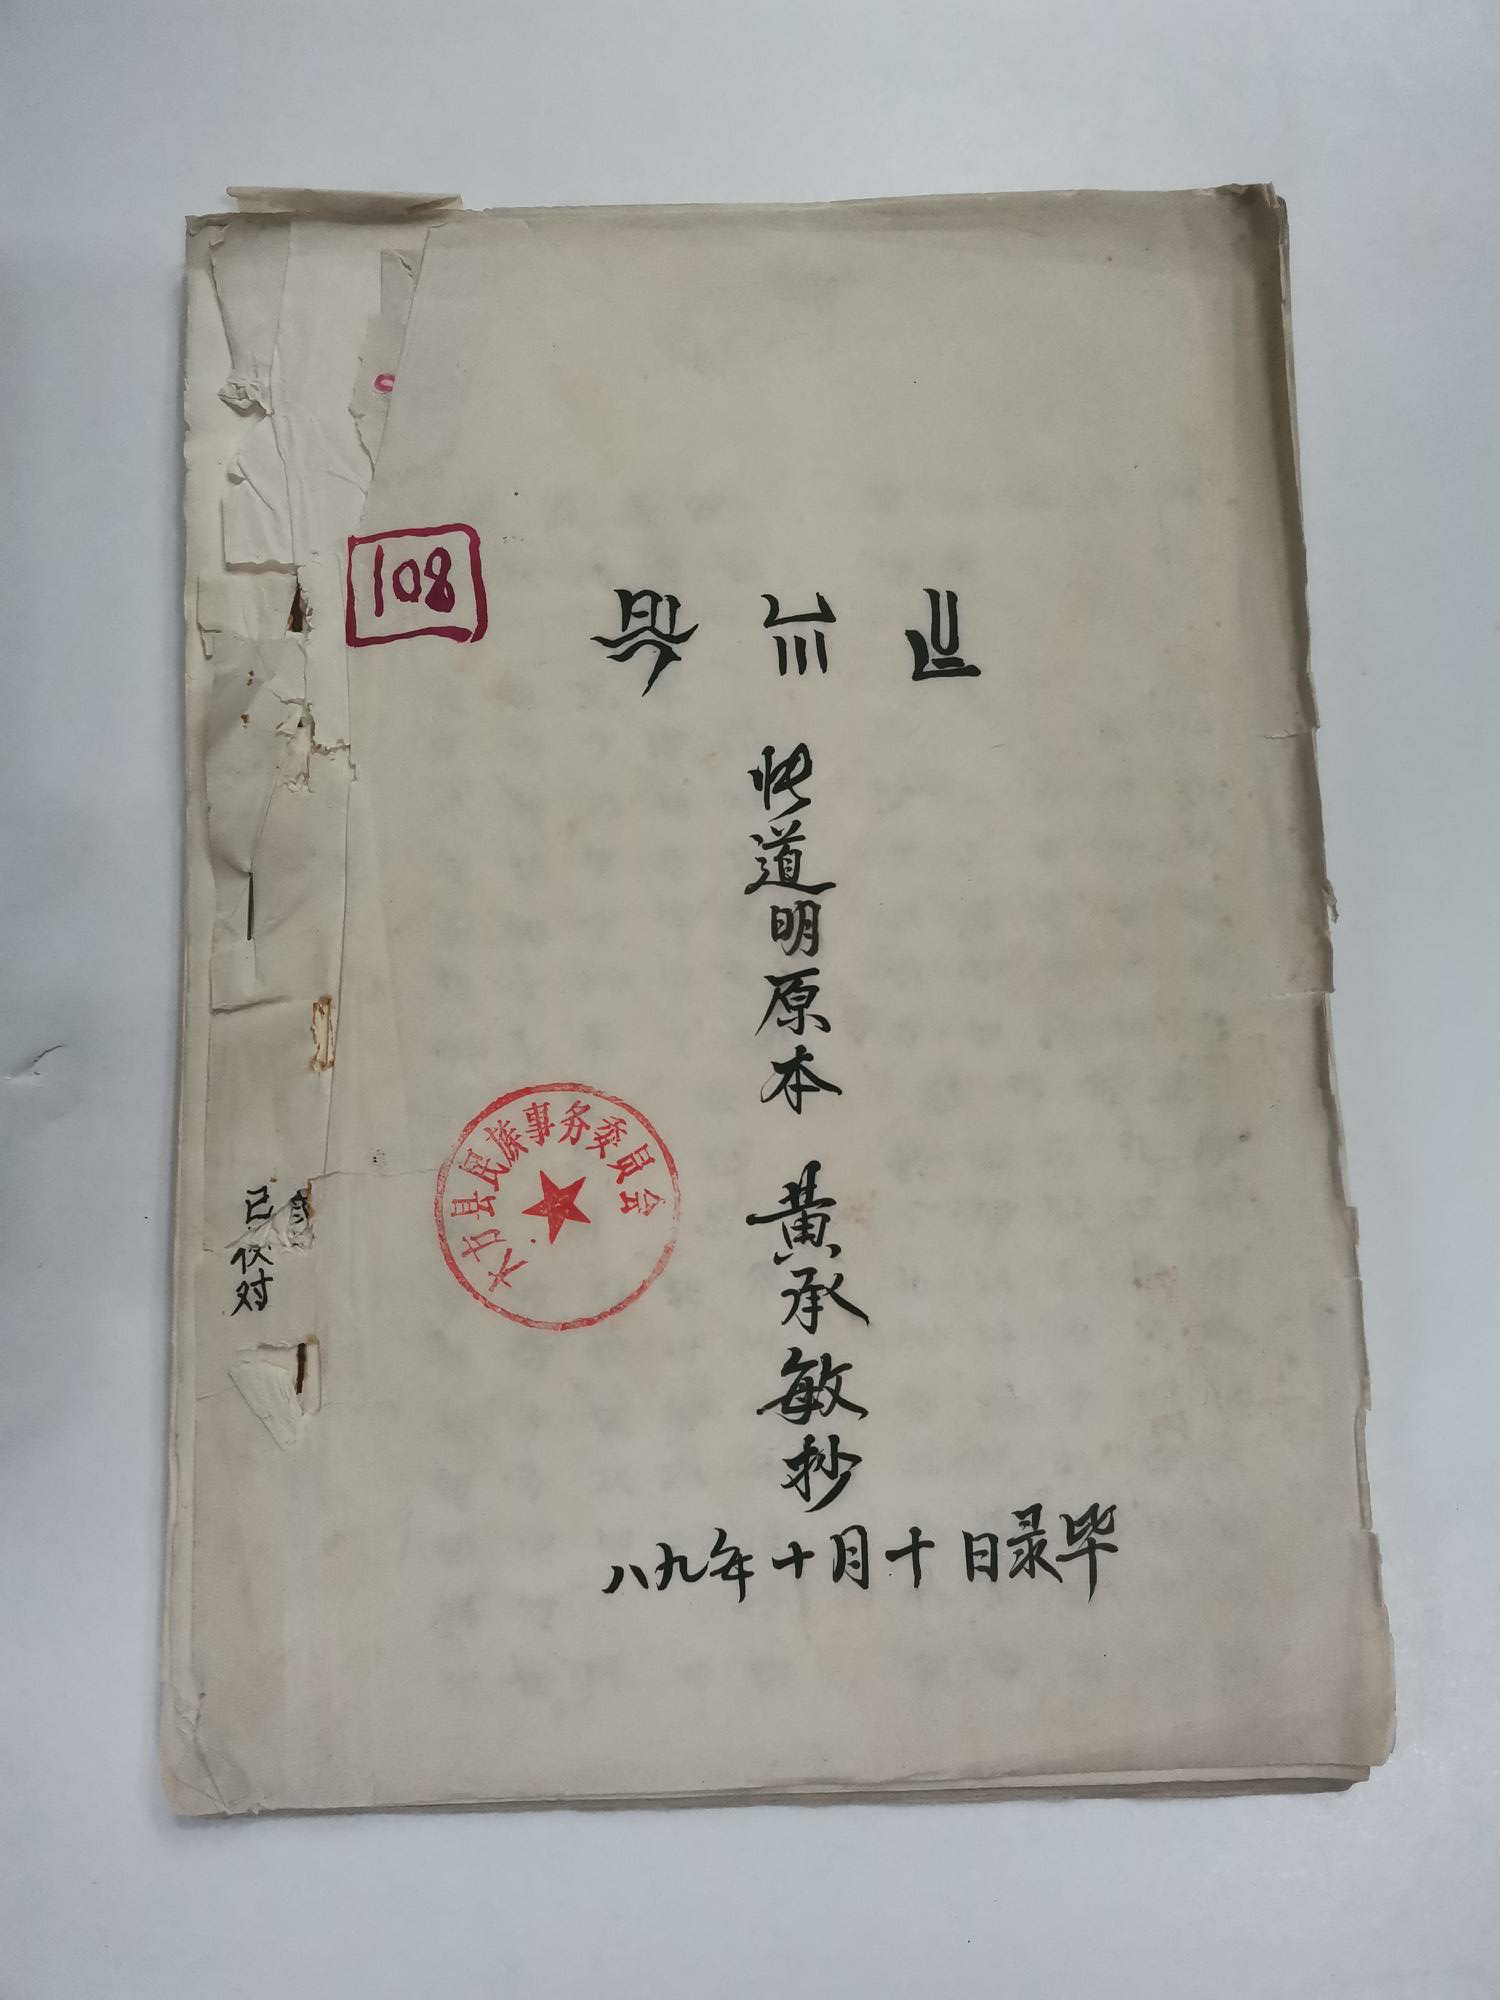 108
快道明原本 黄承敏抄
八九年十月十日录毕
大方县民族事务委员会
已
对